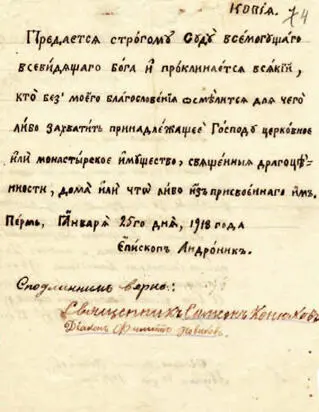 Копія. 74
Предается строгому Суду всемогущаго
всевидящаго бога и проклинается всякій,
кто без' моего благословенія осмѣлится для чего
либо захватить принадлежащее Господу церковное
или монастырское имущество, священныя драгоцѣ-
нности, дома или что либо из присвоеннаго им.
Пермь, Января 25го дня, 1918 года
Епископ Андроник.
Сподлинним вѣрно:
Священникъ Симеон Конюхов
Діакон Новиков